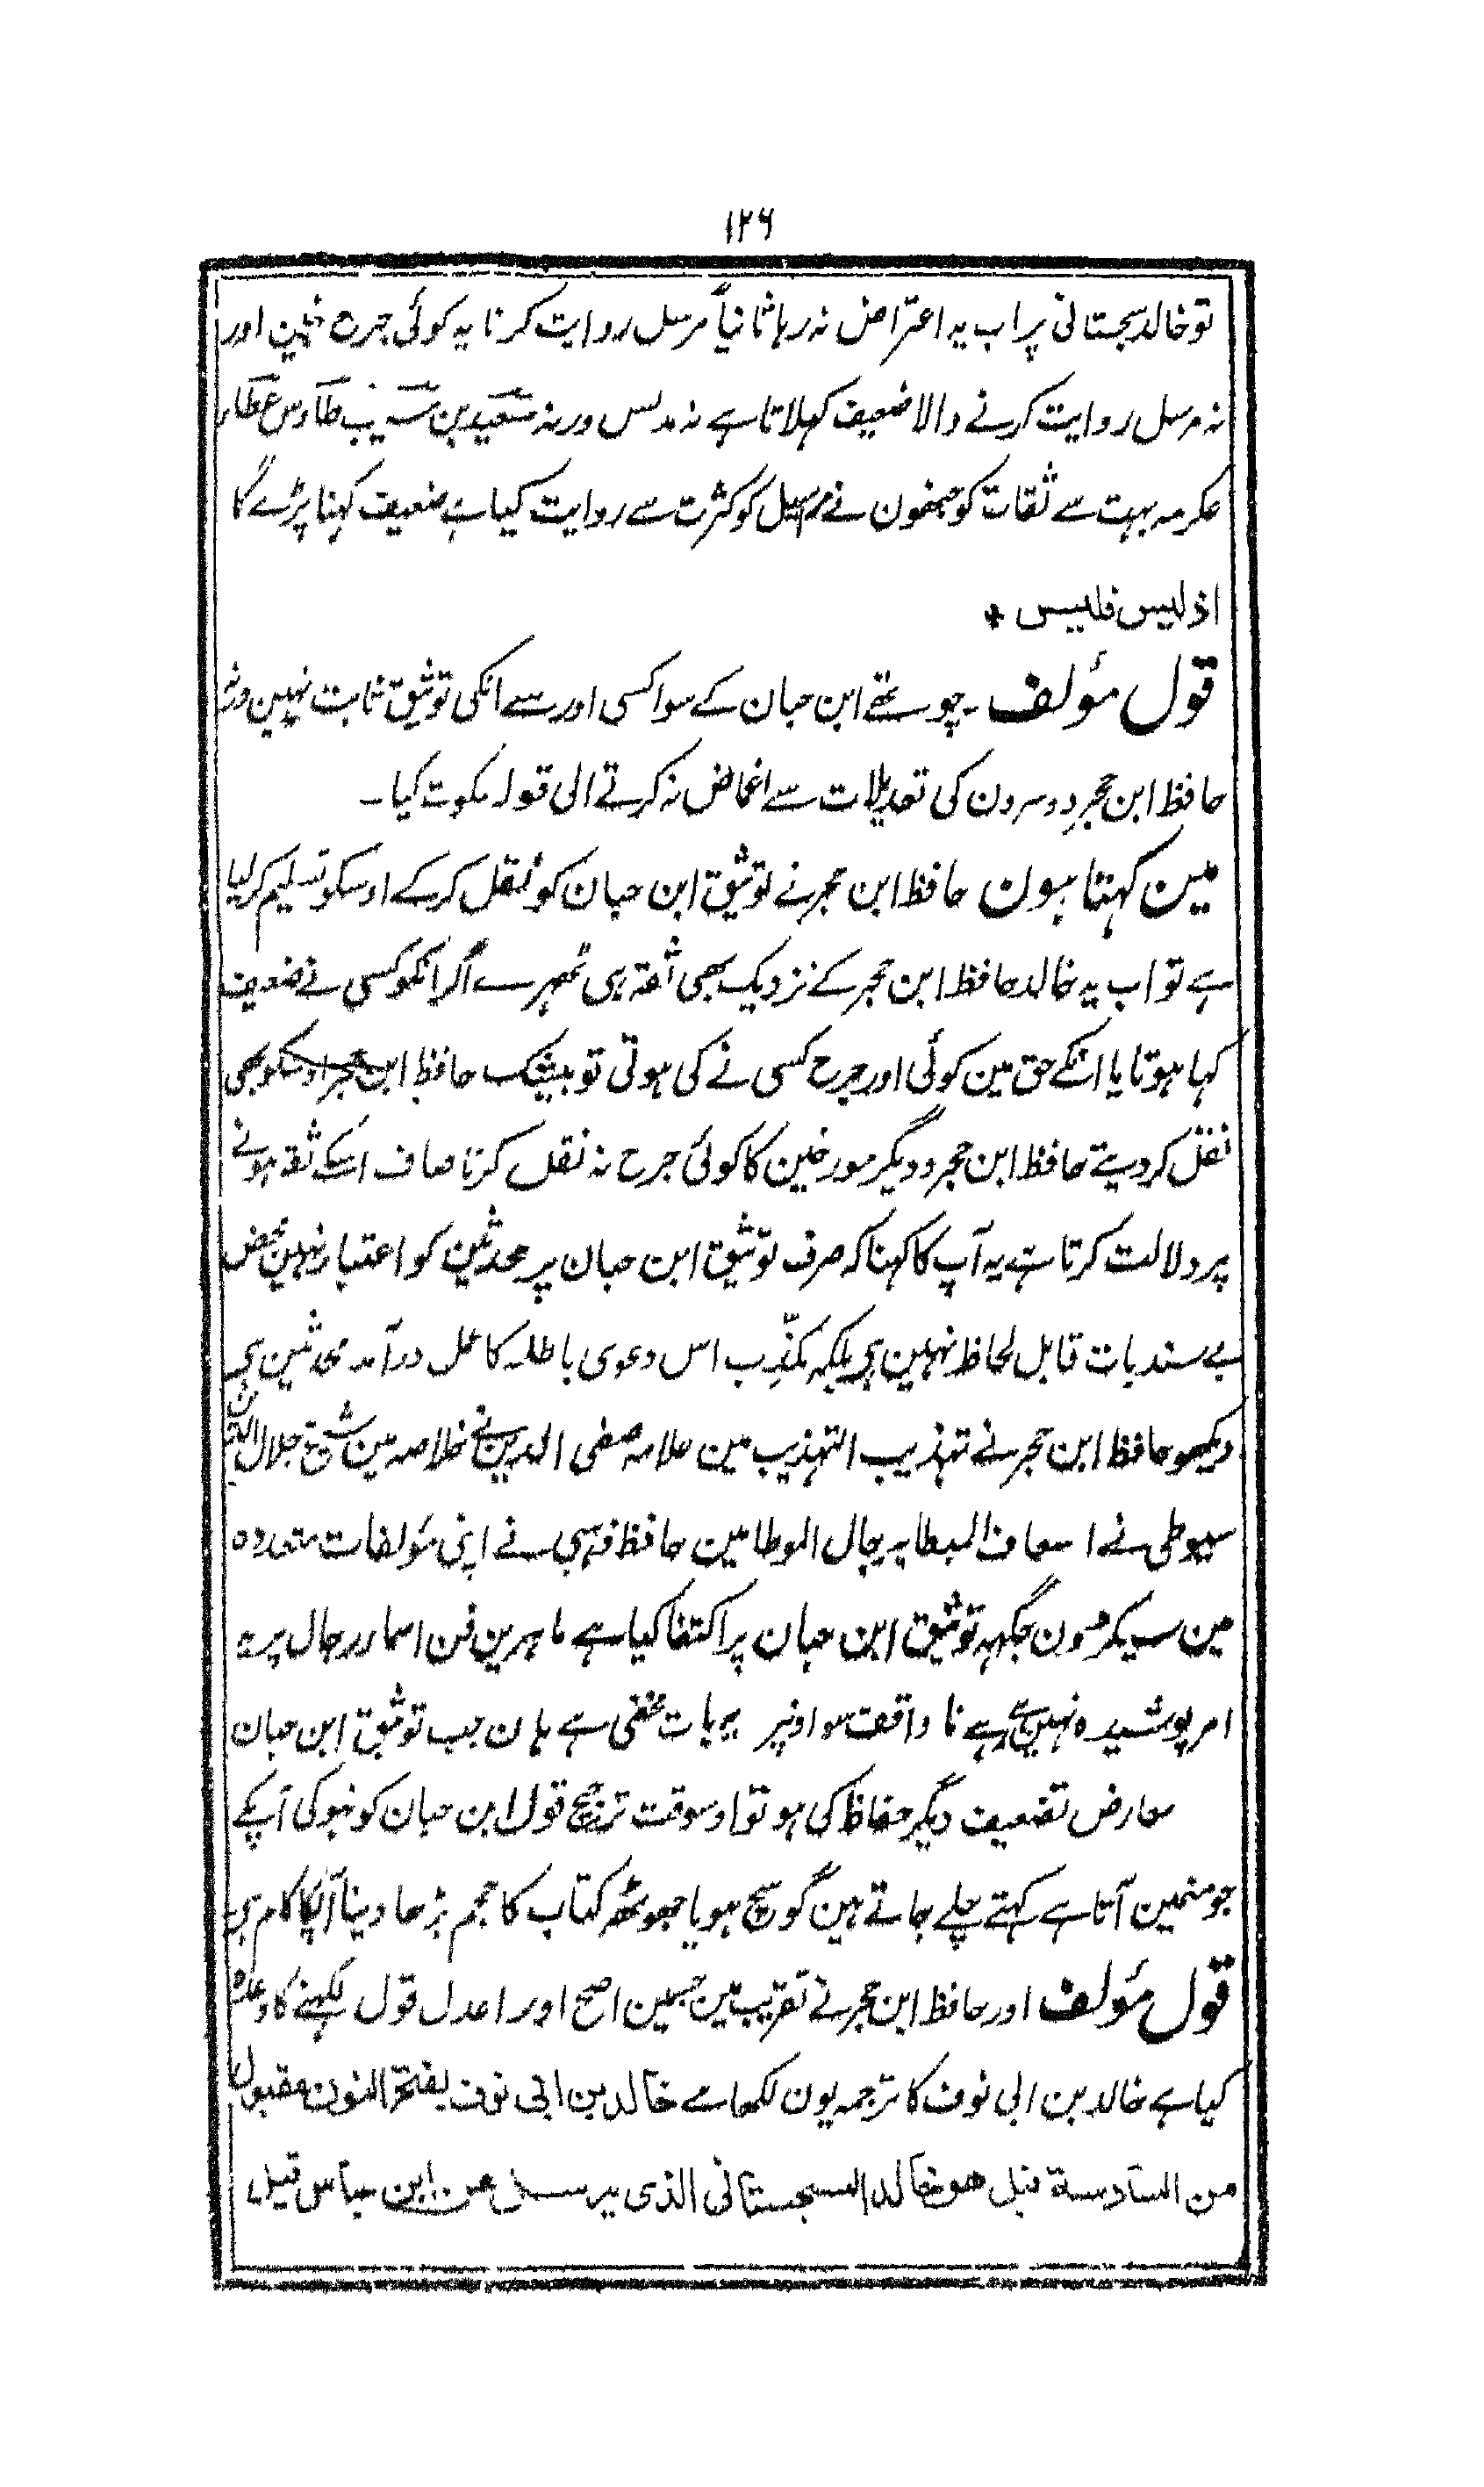 ۱۲۶
تو خالد سجستانی پر اب یہ اعتراض نہ رہا ثانیاً مرسل روایت کرنا یہ کوئی جرح نہین اور
نہ مرسل روایت کرنے والا ضعیف کہلاتا ہے نہ مدلس ورنہ سعید بن مسیب طاؤس عطاء
عکرمہ بہت سے ثقات کو جنھون نے مراسیل کو کثرت سے روایت کیا ہے ضعیف کہنا پڑے گا
اذ لیس فلیس *
قول مؤلف ۔ چوتھے ابن حبان کے سوا کسی اور سے انکی توثیق ثابت نہین ورنہ
حافظ ابن حجر دوسرون کی تعدیلات سے اغماض نہ کرتے الی قولہ سکوت کیا ۔
مین کہتا ہون حافظ ابن حجر نے توثیق ابن حبان کو نقل کرکے اوسکو تسلیم کرلیا
ہے تو اب یہ خالد حافظ ابن حجر کے نزدیک بھی ثقہ ہی ٹھہرے اگر انکو کسی نے ضعیف
کہا ہوتا یا انکے حق مین کوئی اور جرح کسی نے کی ہوتی تو بیشک حافظ ابن حجر اوسکو بھی
نقل کر دیتے حافظ ابن حجر و دیگر مورخین کا کوئی جرح نہ نقل کرنا صاف اسکے ثقہ ہونے
پر دلالت کرتا ہے یہ آپ کا کہنا کہ صرف توثیق ابن حبان پر محدثین کو اعتبار نہین محض
بے سند بات قابل لحاظ نہین ہی بلکہ مکذّب اس دعوی باطلہ کا عمل درآمد محدثین ہی
دیکھو حافظ ابن حجر نے تہذیب التہذیب مین علامہ صفی الدین نے خلاصہ مین شیخ جلال الدین
سیوطی نے اسعاف المبطا برجال الموطا مین حافظ ذہبی نے اپنی مؤلفات متعددہ
مین سیکڑون جگہہ توثیق ابن حبان پر اکتفا کیا ہے ماہرین فن اسماء رجال پر یہ
امر پوشیدہ نہین ہے نا واقف سوا ونپر یہ بات مخفی ہے ہان جب توثیق ابن حبان
معارض تضعیف دیگر حفاظ کی ہو تو اوسوقت ترجیح قول ابن حبان کو نہوگی آپکے
جو منھمین آتا ہے کہتے چلے جاتے ہین گو سچ ہو یا جھوٹھ کتاب کا حجم بڑھا دینا آپکا کام ہی
قول مؤلف اور حافظ ابن حجر نے تقریب مین جسمین اصح اور اعدل قول لکھنے کا وعدہ
کیا ہے خالد بن ابی نوف کا ترجمہ یون لکھا ہے خالد بن ابی نوف بفتح النون مقبول
من السادسة قیل هو خالد السجستانی الذی یرسل عن ابن عباس قیل